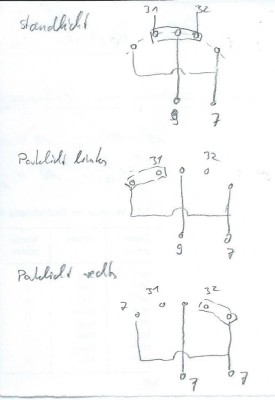 Standlicht
31 32
9 7
Parklicht links
31 32
9 7
Parklicht rechts
7 31 32
7 7